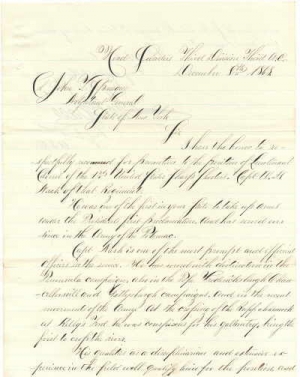 Head Quarters Third Division Third A.C.
December 8th 1863
John T. Sprague
Adjutant General
State of New York
Sir
I have the honor to re-
spectfully recommend for promotion to the position of Lieutenant
Colonel of the 1st United States Sharp Shooters. Capt
of that Regiment.
He was one of the first in your State to take up arms
under the President's first proclamation and has served ever
since in the Army of the Potomac.
Capt. is one of the most prompt and efficient
officers in the service. He has served with distinction in the
Peninsula campaign, also in the Fredericksburg Chan-
cellorsville and Gettysburg campaigns. And in the recent
movement of the Army at the crossing of the Rappahannock
at Kelly's Ford he was conspicuous for his gallantry, being the
first to cross the river.
His qualities as a disciplinarian and extensive ex-
perience in the field well qualify him for the position and